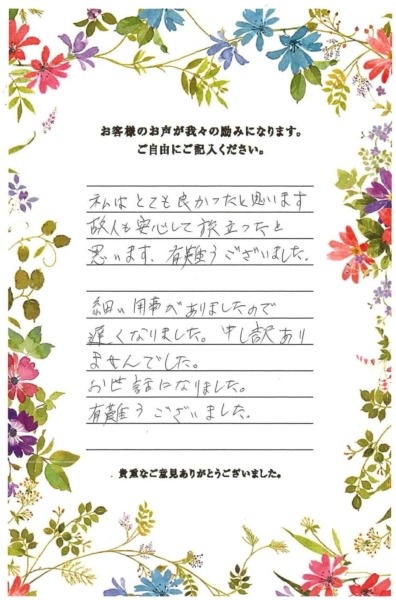 お客様のお声が我々の励みになります。
ご自由にご記入ください。
私はとても良かったと思います
故人も安心して旅立ったと
思います、有難うございました。
細い用事がありましたので
遅くなりました。申し訳あり
ませんでした。
お世話になりました。
有難うございました。
貴重なご意見ありがとうございました。